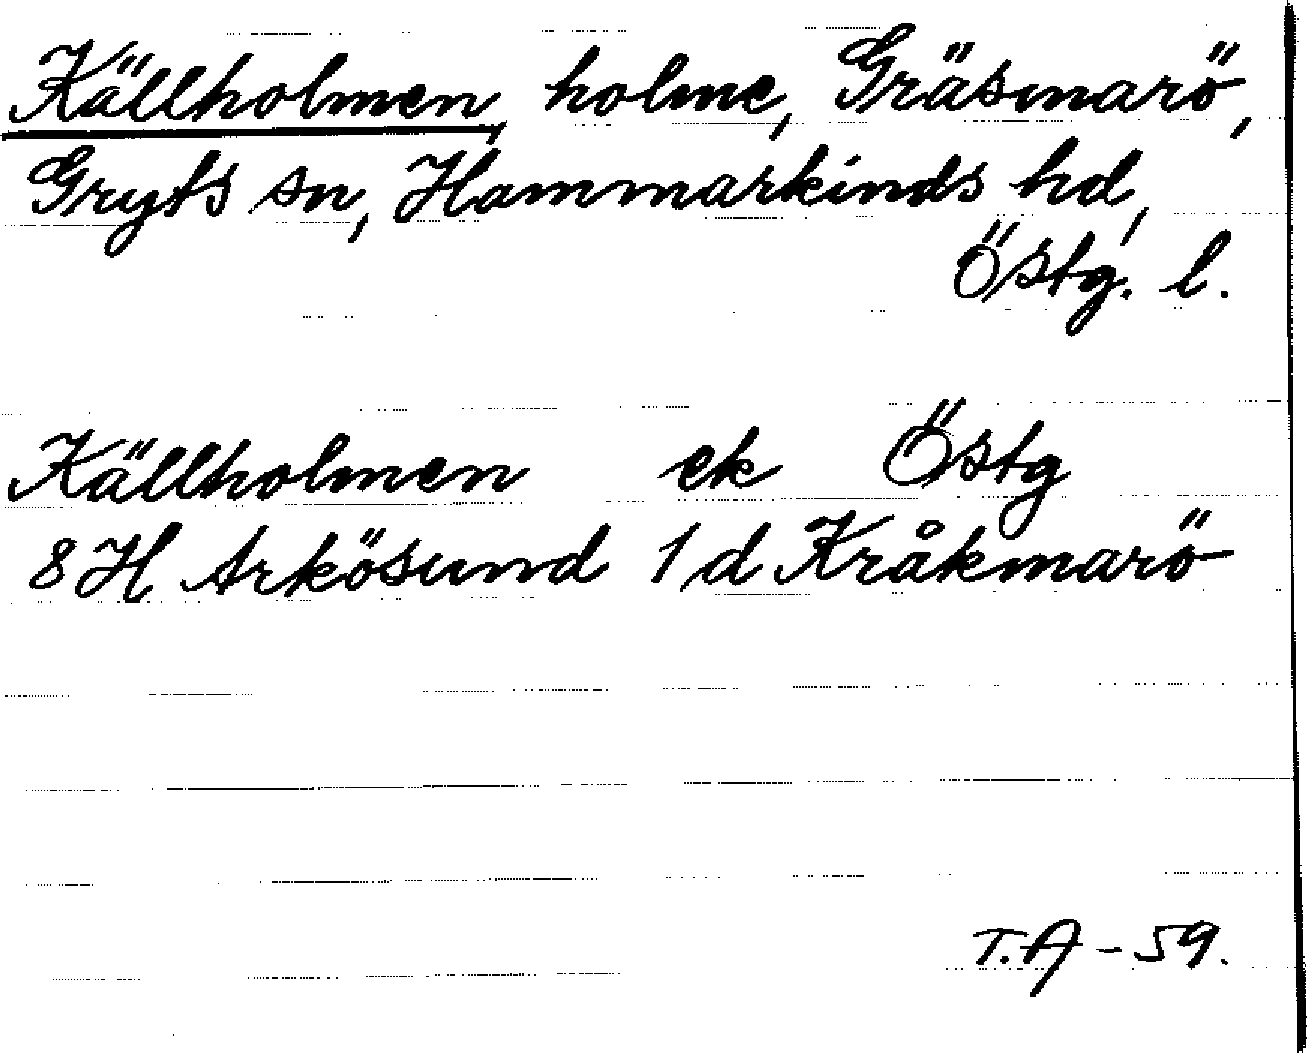 Källholmen, holme, Gräsmarö,
Gryts sn, Hammarkinds hd,
Östg. l.
Källholmen ek Östg
8H Arkösund 1d Kråkmarö
T.A - 59.